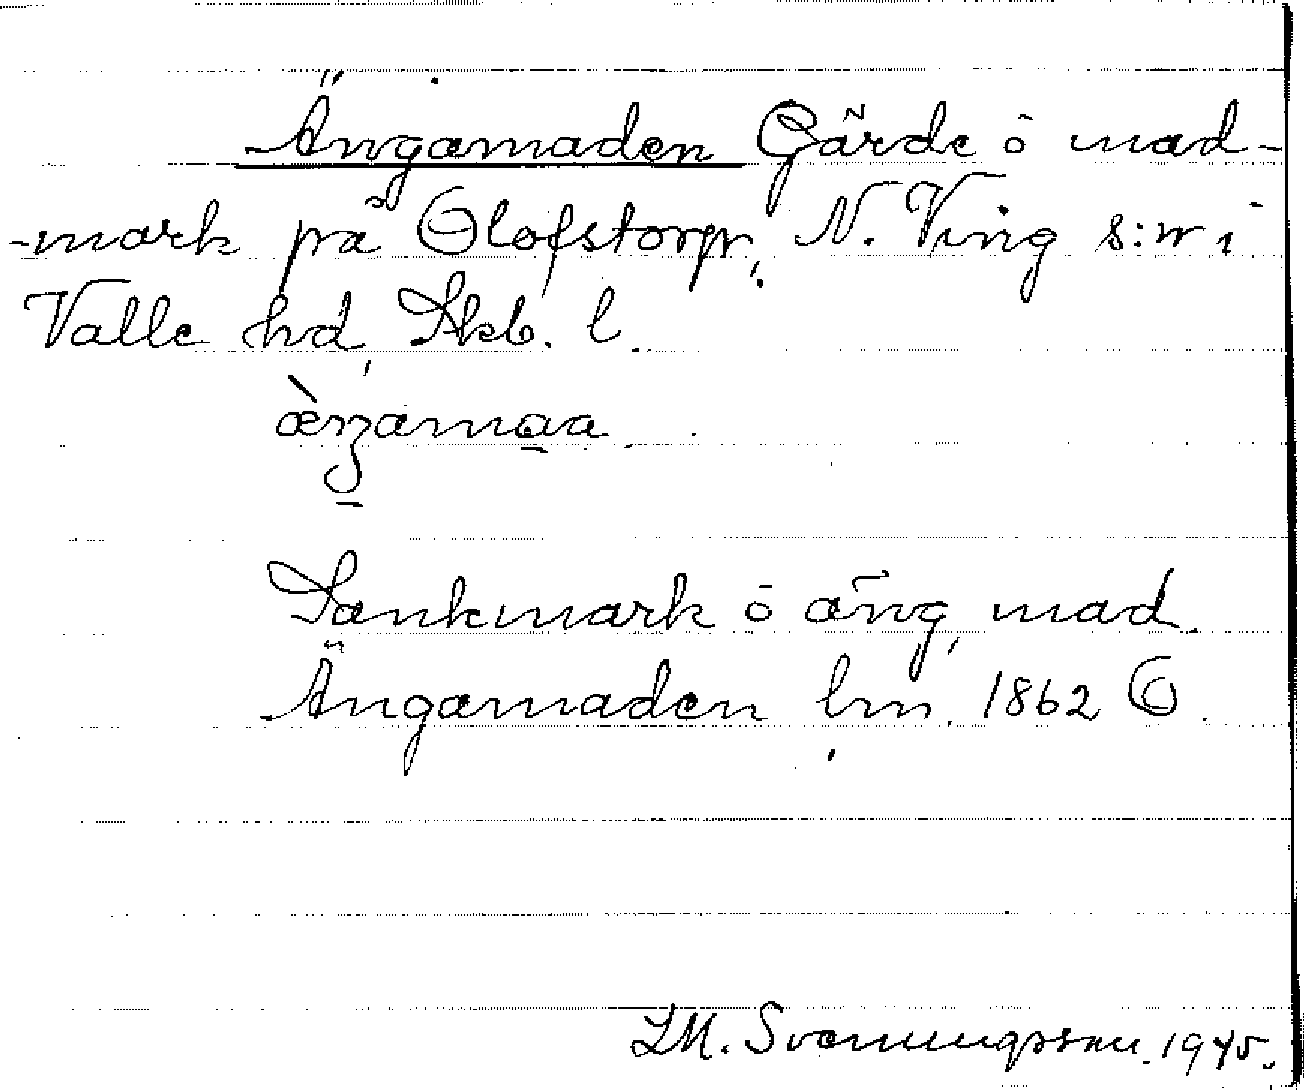 Ängamaden Gärde ö mad-
-mark på Olofstorp, N. Ving s:n i
Valle hd, Skb. l.
æ̀ŋamaa
Sankmark ö äng, mad.
Ängamaden hm. 1862 O.
LM. Svenungsson. 1945.